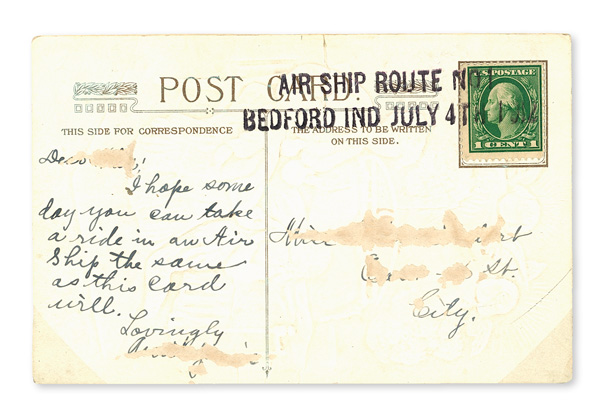 POST CARD.
AIR SHIP ROUTE NO
BEDFORD IND JULY 4TH
U.S. POSTAGE
1 CENT 1
THIS SIDE FOR CORRESPONDENCE
THE ADDRESS TO BE WRITTEN
ON THIS SIDE.
Dear
I hope some
day you can take
a ride in an Air
Ship the same
as this card
will.
Lovingly
St.
City.